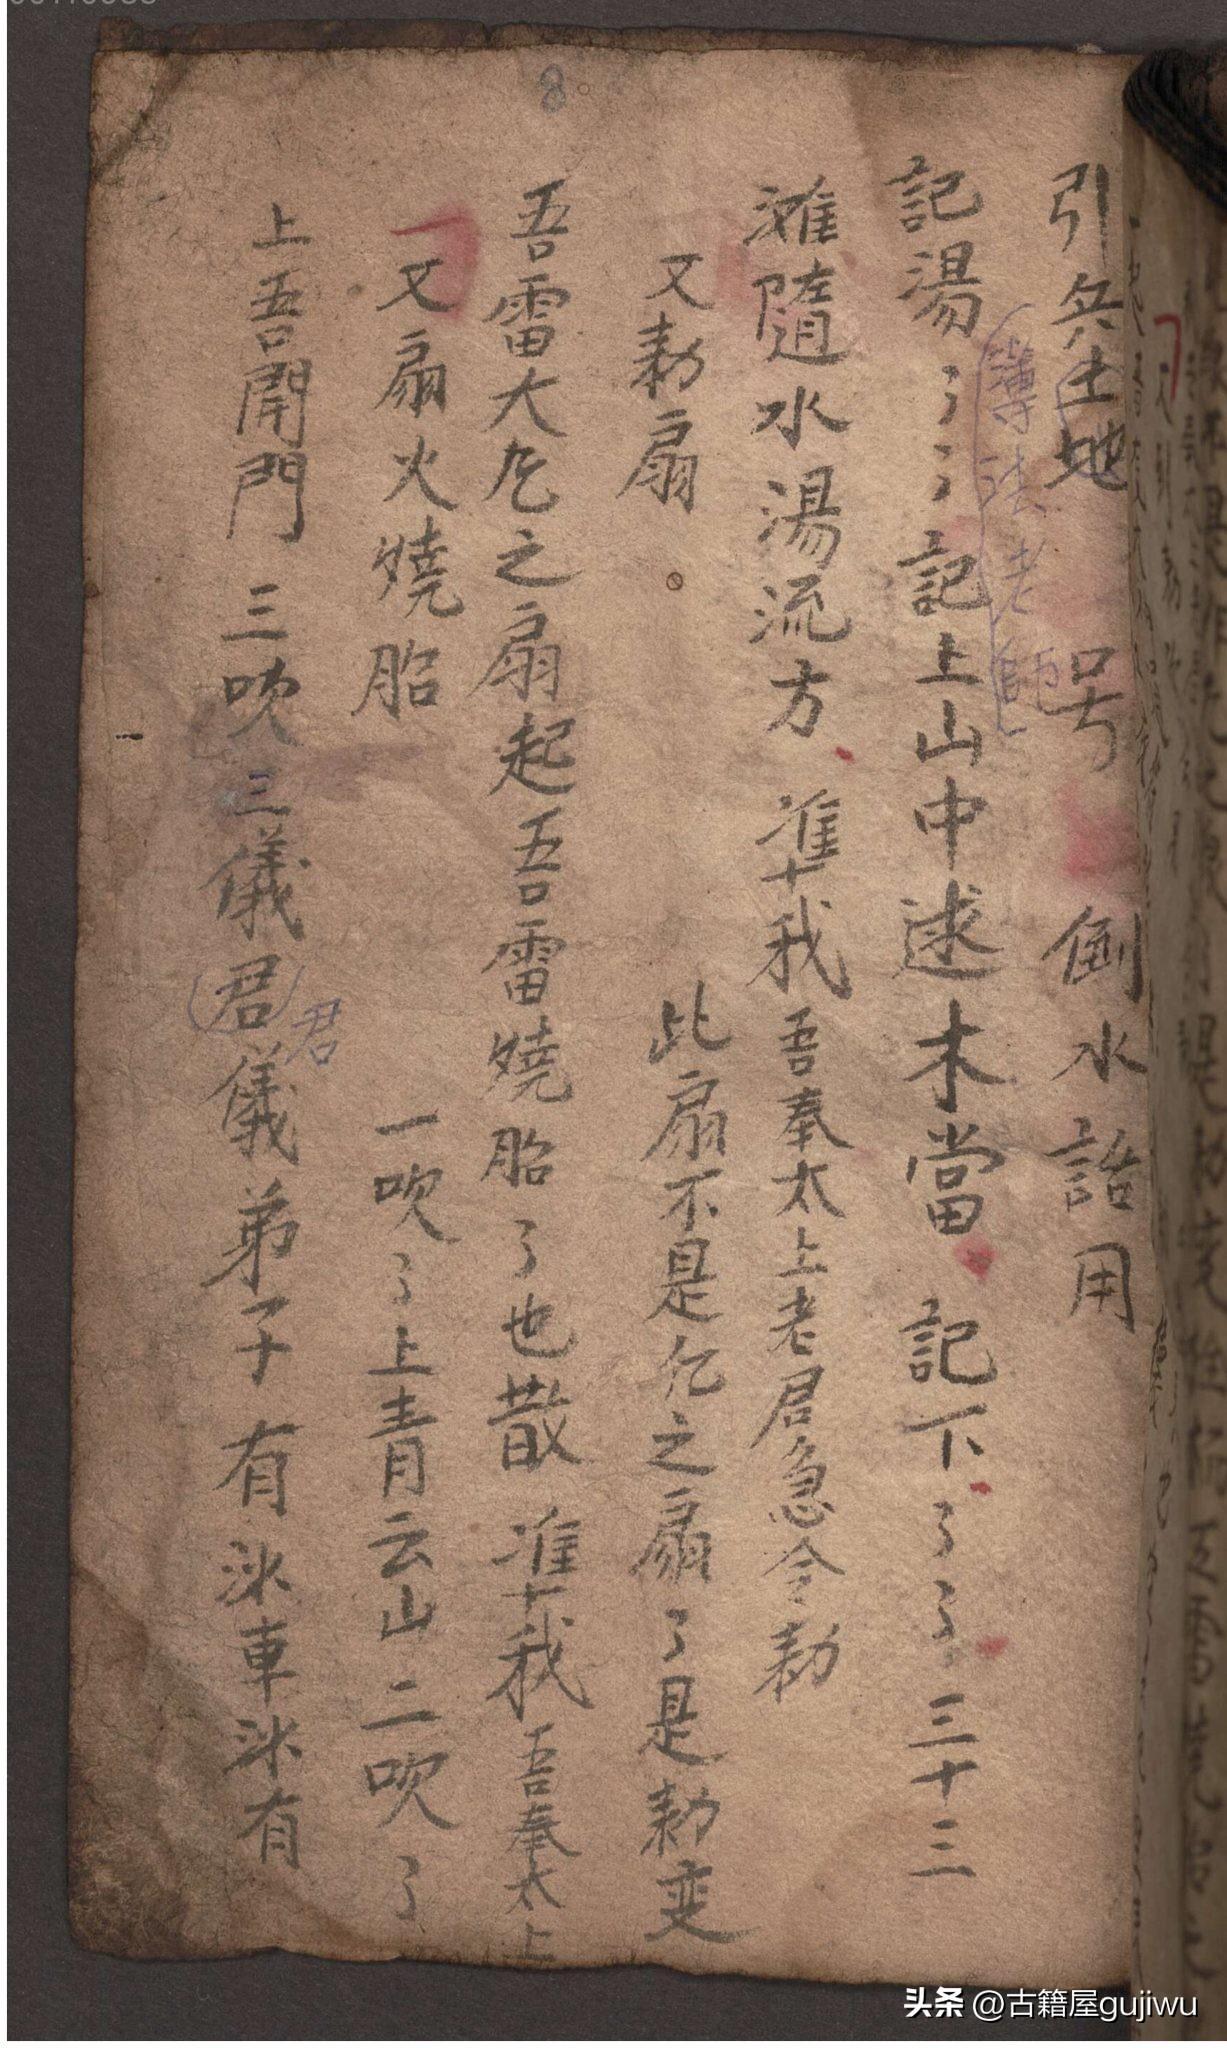 8
引兵土地 号 倒水語用
簿法老師
記湯了了記上山中逑木當 記下了了三十三
灘隨水湯流方 準我吾奉太上老君急令勅
又勅扇 此扇不是乞之扇了是勅变
吾雷大乞之扇起吾雷燒胎了也散 准我吾奉太上
又扇火燒胎 一吹了上青云山二吹了
上吾開門三吹三儀君儀弟子有氷車氷有
君
头条 @古籍屋gujiwu